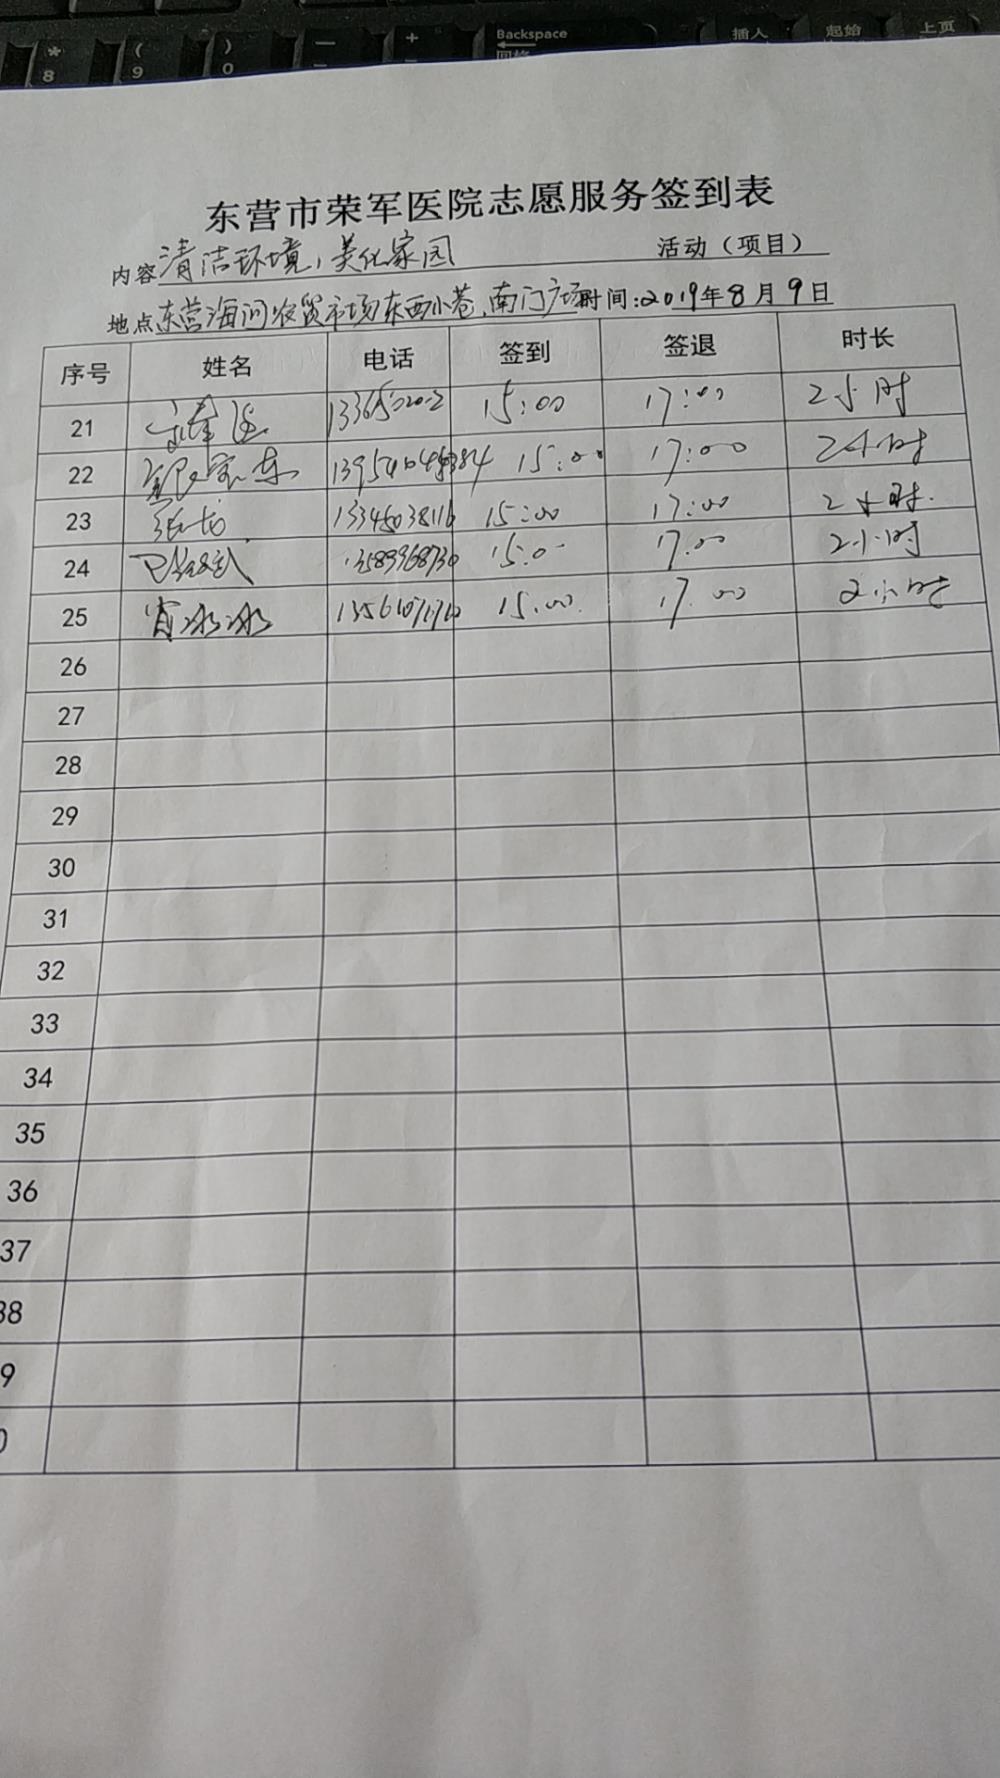 * 8
( 9
) 0
Backspace
插入
起始
上页
东营市荣军医院志愿服务签到表
内容 清洁环境,美化家园 活动(项目)
地点 东营海河农贸市场东西小巷、南门广场 时间:2019年8月9日
序号 姓名 电话 签到 签退 时长
21 15:00 17:00 2小时
22 15:00 17:00 2小时
23 张龙 13345038116 15:00 17:00 2小时.
24 13589968730 15:0 17:00 2小时
25 肖冰冰 15:00 17:00 2小时
26
27
28
29
30
31
32
33
34
35
36
37
38
9
0